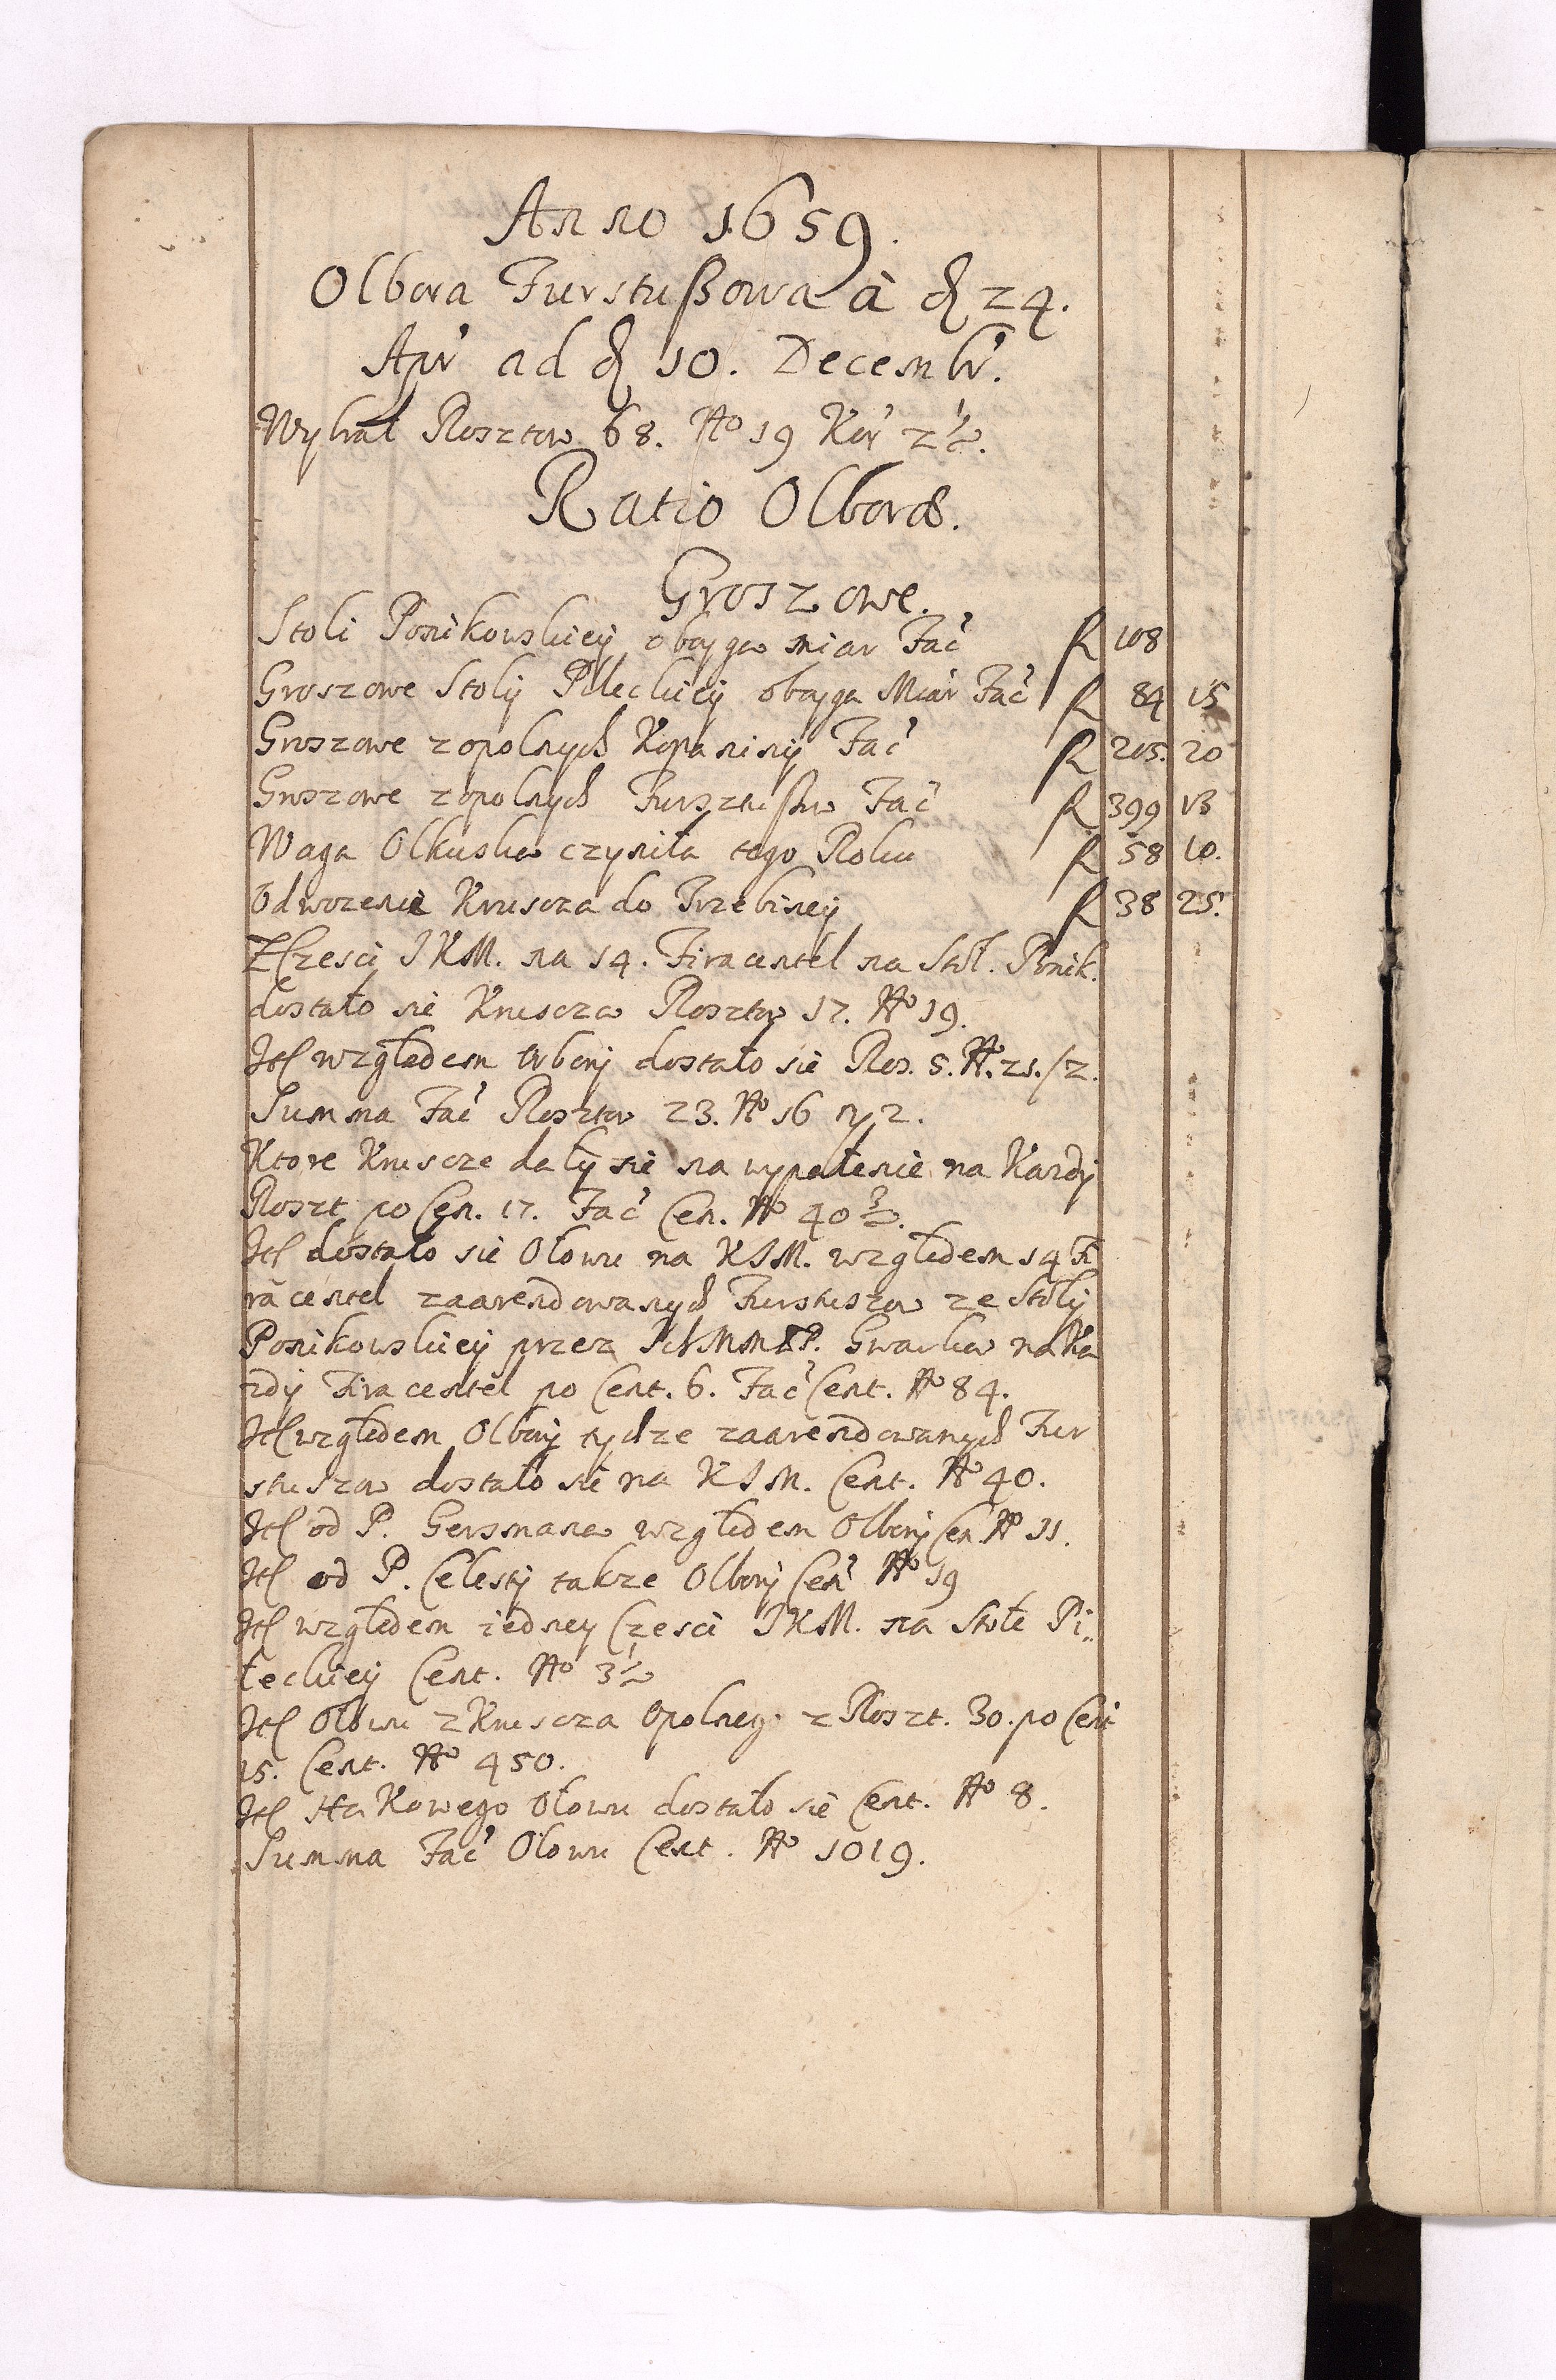 Anno 1659.
Olbora Furstußowa à d 24.
Apr ad d 10. Decembr.
Wybrał Rosztow 68. No 19 Kor 2½.
Ratio Olboræ.
Groszowe.
Stoli Ponikowskiey oboyga miar Fac fl 108
Groszowe Stoly Pileckiey oboyga Miar Fac fl 84 15
Groszowe z opolnych Kopaniny Fac fl 205. 20
Groszowe z opolnych Fursztußow Fac fl 399 13
Waga Olkuska czyniła tego Roku fl 58 10.
Odwozenie Kruscza do Trzebiney fl 38 25.
Z Czesci JKM. na 14. Firacentel na Stol. Ponik.
dostało sie Kruscza Rosztow 17. No 19.
Itl wzgledem Olbory dostało sie Ros. 5. No. 21./2.
Summa Fac Rosztow 23. No 16 y 2.
Ktore Kruscze dały sie na wypalenie na Kazdy
Roszt po Cen. 17. Fac Cen. No 40
Itl dostało sie Ołowu na KJM. wzgledem 14 Fi
racentel zaarendowanych Furstuszow ze Stoly
Ponikowskiey przez MMP. Gwarkow na Ka
zdy Firacentel po Cent. 6. Fac Cent. No 84.
Itl wzgledem Olbory tychze zaarendowanych Fur
stuszow dostało sie na KJM. Cent. No 40.
Itl od P. Gersmana wzgledem Olbory Cen No 11.
Itl od P. Celesty takze Olbory Cen No 19
Itl wzgledem iedney Czesci JKM. na Stole Pi„
łeckiey Cent. No 3½
Itl Ołowu z Kruscza Opolneg. z Roszt. 30. po Cent
15. Cent. No 450.
Itl HaKowego Ołowu dostało sie Cent. No 8.
Summa Fac Ołowu Cent. No 1019.